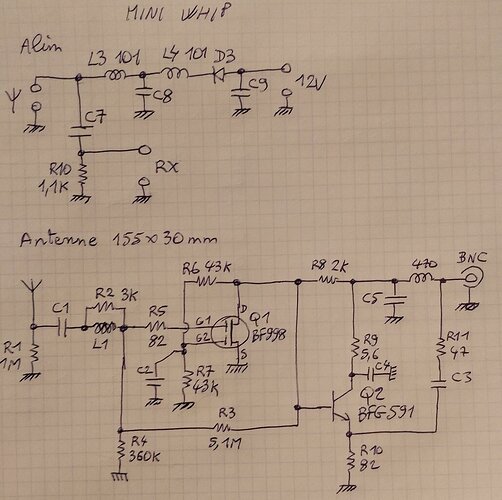 MINI WHIP
Alim
L3 101 L4 101 D3
C8
C9
12V
C7
R10
1,1K
RX
Antenne 155x30mm
R6 43K
R8 2K
470
BNC
R2 3K
C1
L1
R5
82
G1
G2
D
S
Q1
BF998
C5
R1
1M
C2
R7
43K
R9
5,6
C4
R11
47
C3
Q2
BFG591
R3
5,1M
R4
360K
R10
82